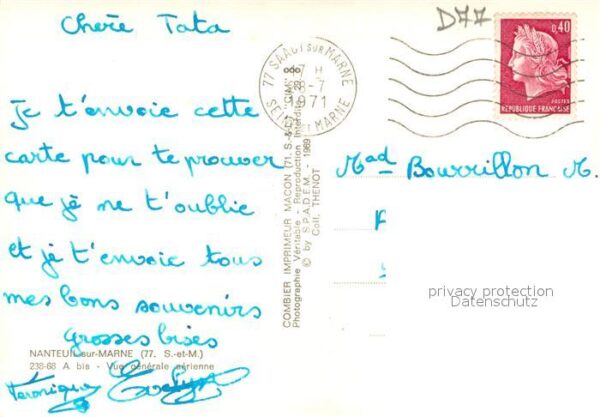 Chere Tata
D77
0,40
RÉPUBLIQUE FRANÇAISE
77 SAACY SUR MARNE
1971
SEINE ET MARNE
Je t'envoie cette
carte pour te prouver
que je ne t'oublie
et je t'envoie tous
mes bons souvenirs
grosses bises
Véronique
Mad Bourrillon M.
COMBIER IMPRIMEUR MACON (71. S.-&-L.)
Photographie Véritable - Reproduction Interdite
© by S.P.A.D.E.M. 1969
Coll. THENOT
privacy protection
Datenschutz
NANTEUIL-sur-MARNE (77. S.-et-M.)
238-68 A bis - Vue générale aérienne